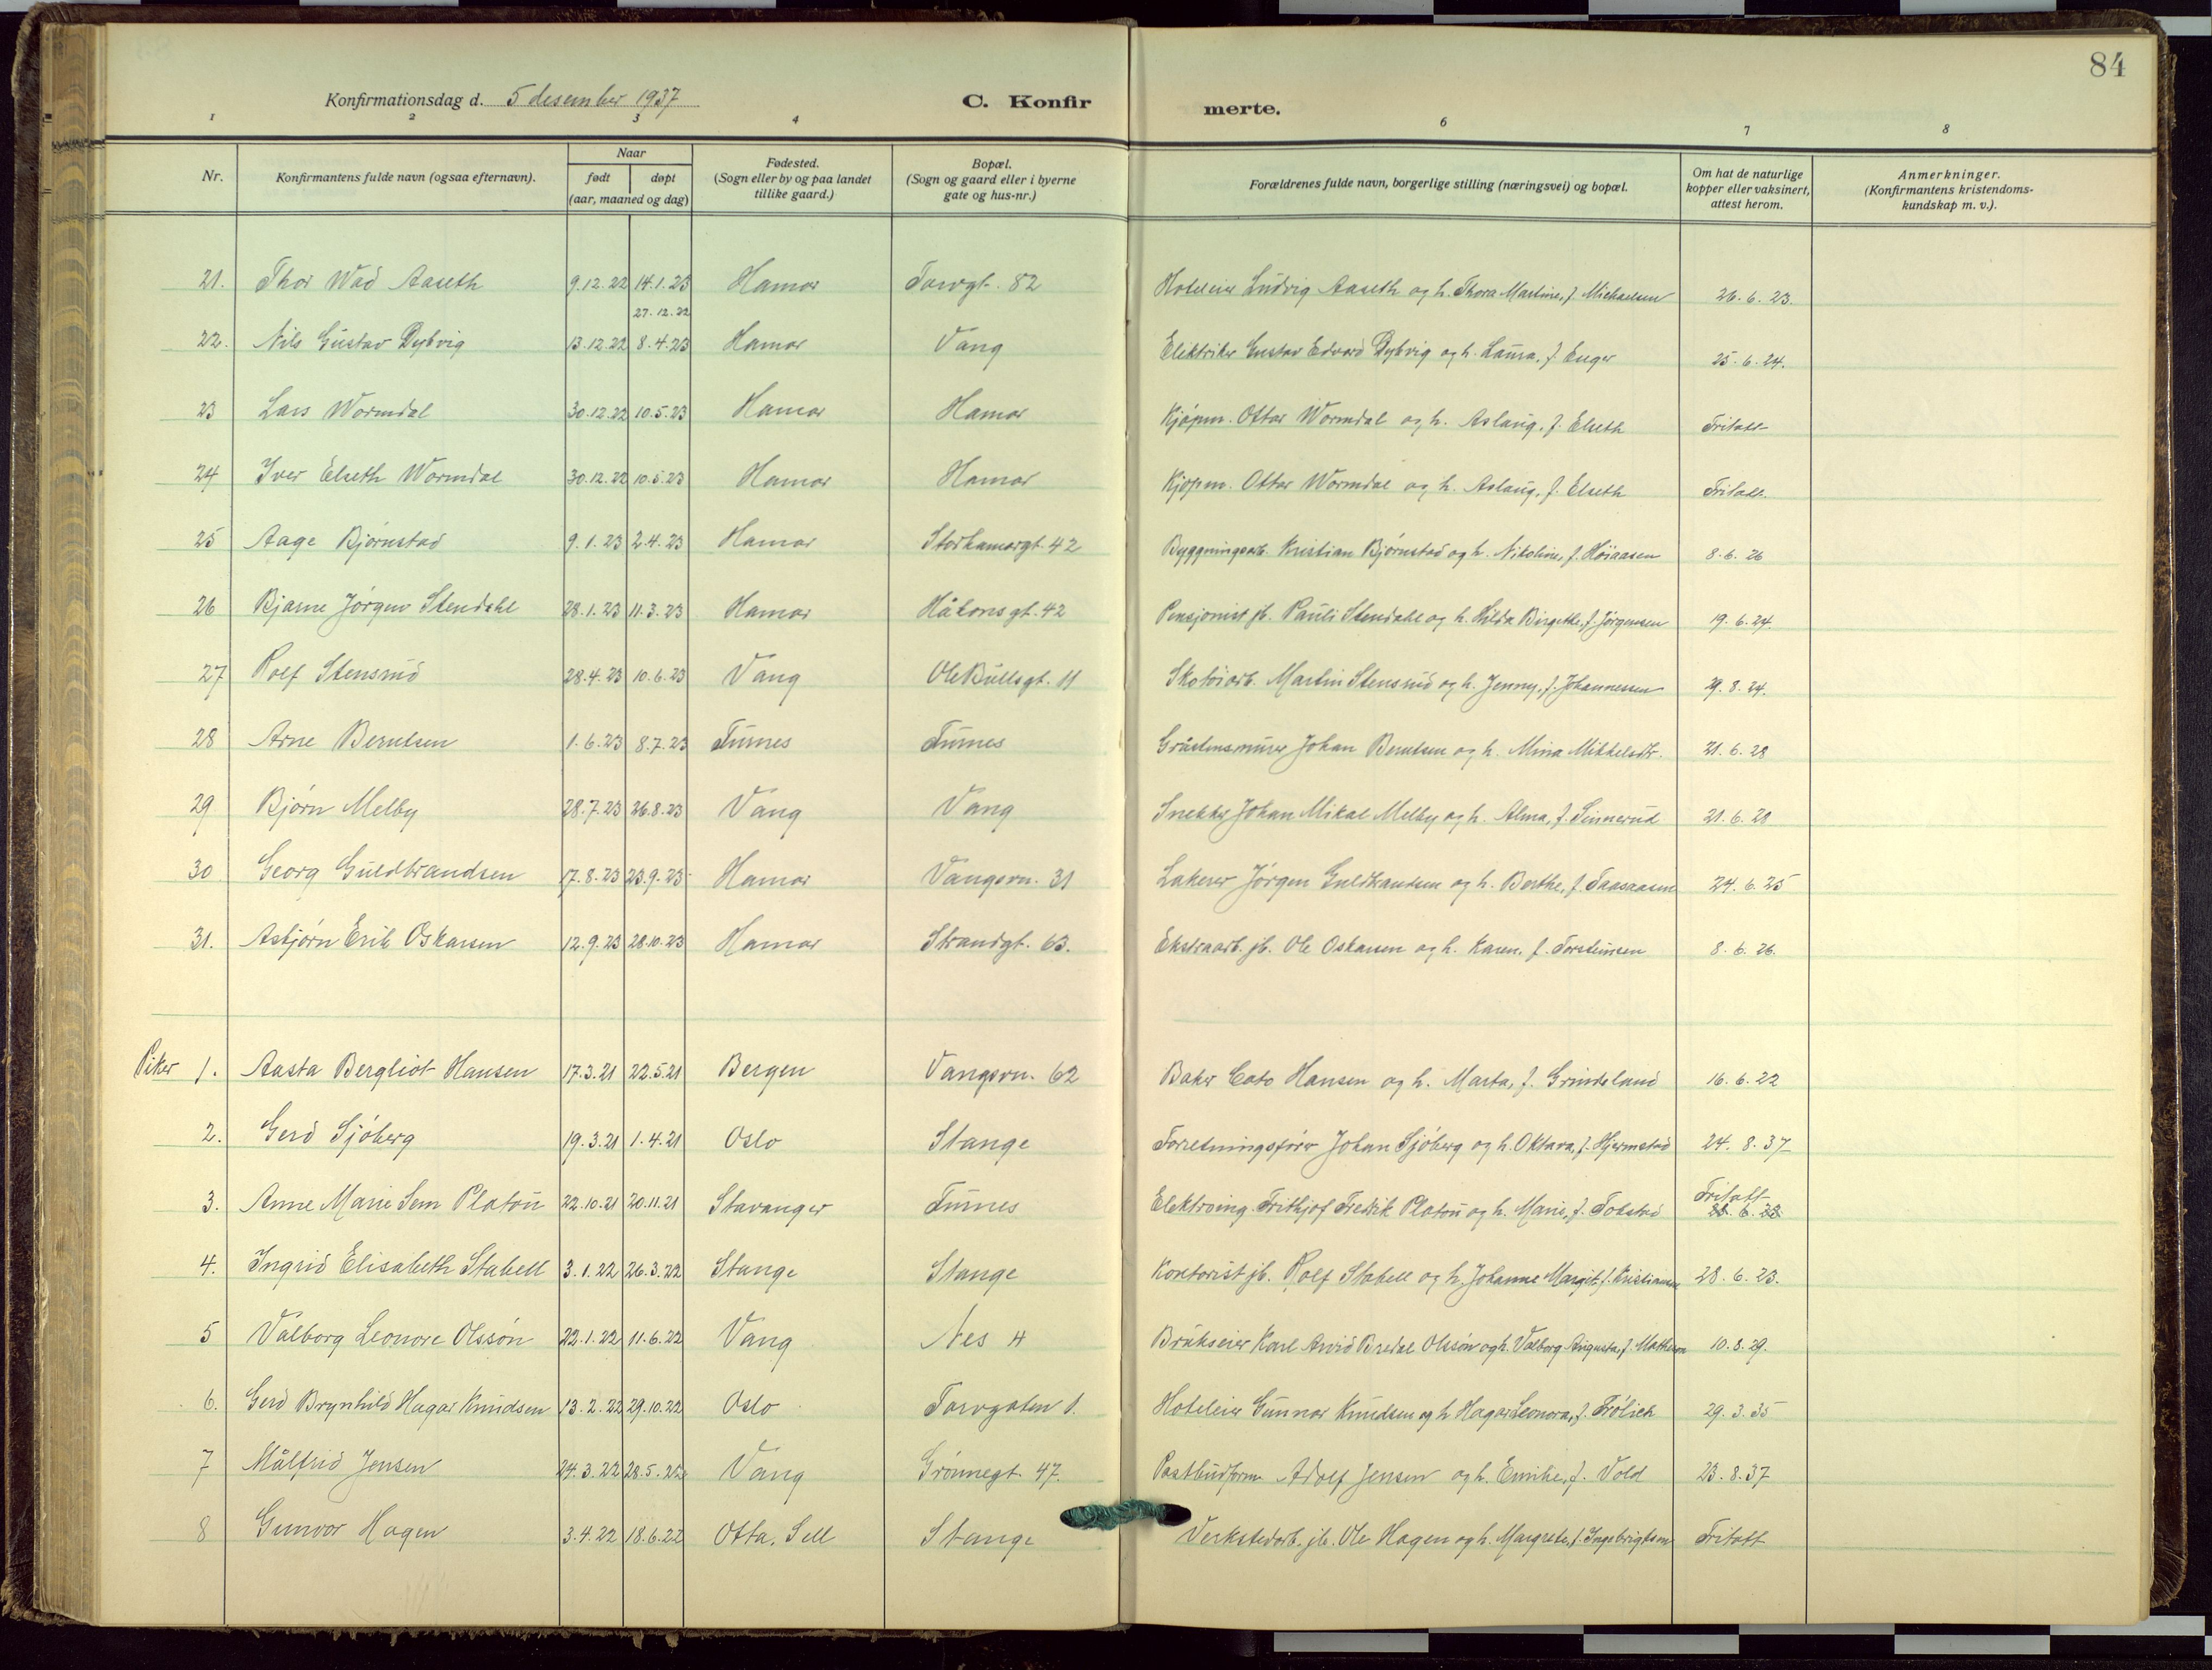 84
Konfirmationsdag d. 5 desember 1937 C. Konfirmerte.
1 2 3 4 6 7 8
Nr. Konfirmantens fulde navn (ogsaa efternavn). Naar født døpt (aar, maaned og dag) Fødested. (Sogn eller by og paa landet tillike gaard.) Bopæl. (Sogn og gaard eller i byerne gate og hus-nr.) Forældrenes fulde navn, borgerlige stilling (næringsvei) og bopæl. Om hat de naturlige kopper eller vaksinert, attest herom. Anmerkninger. (Konfirmantens kristendomskundskap m. v.).
21. Thor Wad Aaseth 9.12.22 14.1.23 Hamar Torvgt. 82 Hoteleier Ludvig Aaseth og h. Thora Martine, f. Michaelsen 26.6.23.
27.12.22
22. Nils Gustav Dybvig 13.12.22 8.4.23 Hamar Vang Elektriker Gustav Edvard Dybvig og h. Laura, f. Enger 25.6.24.
23 Lars Wormdal 30.12.22 10.5.23 Hamar Hamar Kjøpm. Ottar Wormdal og h. Aslaug, f. Elseth Fritatt
24 Iver Elseth Wormdal 30.12.22 10.5.23 Hamar Hamar Kjøpm. Ottar Wormdal og h. Aslaug, f. Elseth Fritatt
25 Aage Bjørnstad 9.1.23 2.4.23 Hamar Storhamargt. 42 Byggningsarb. Kristian Bjørnstad og h. Nikoline, f. Høiaasen 8.6.26
26 Bjarne Jørgen Stendahl 28.1.23 11.3.23 Hamar Håkonsgt. 42 Pensjonist jb. Pauli Stendahl og h. Hilda Birgithe, f. Jørgensen 19.6.24.
27 Rolf Stensrud 28.4.23 10.6.23 Vang Ole Bullsgt. 11 Skotøiarb. Martin Stensrud og h. Jenny, f. Johannessen 29.8.24.
28 Arne Berntsen 1.6.23 8.7.23 Furnes Furnes Gråstensmurer Johan Berntsen og h. Mina Mikkelsdtr. 21.6.28
29 Bjørn Melby 28.7.23 26.8.23 Vang Vang Snekker Johan Mikal Melby og h. Alma, f. Sinnerud 21.6.28
30 Georg Guldbrandsen 17.8.23 23.9.23 Hamar Vangsvn. 31 Lakerer Jørgen Guldbrandsen og h. Berthe, f. Taasaasen 24.6.25
31. Asbjørn Erik Oskarsen 12.9.23 28.10.23 Hamar Strandgt. 63. Ekstraarb. jb. Ole Oskarsen og h. Karen, f. Torsteinsen 8.6.26.
Piker 1. Aasta Bergliot Hansen 17.3.21 22.5.21 Bergen Vangsvn. 62 Baker Cato Hansen og h. Marta, f. Grindeland 16.6.22
2. Gerd Sjøberg 19.3.21 1.4.21 Oslo Stange Forretningsfører Johan Sjøberg og h. Oktava, f. Hjermstad 24.8.37
3. Anne Marie Sem Platou 22.10.21 20.11.21 Stavanger Furnes Elektroing. Frithjof Fredrik Platou og h. Marie, f. Tokstad Fritatt
4. Ingrid Elisabeth Stabell 3.1.22 26.3.22 Stange Stange Kontorist jb. Rolf Stabell og h. Johanne Margit, f. Kristiansen 28.6.23.
5 Valborg Leonore Olssøn 22.1.22 11.6.22 Vang Nes H Brukseier Karl Arvid Bredal Olssøn og h. Valborg Augusta, f. Mathesen 10.8.29.
6. Gerd Brynhild Hagar Knudsen 13.2.22 29.10.22 Oslo Torvgaten 1. Hoteleier Gunnar Knudsen og h Hagar Leonora, f. Frölich 29.3.35
7 Målfrid Jensen 24.3.22 28.5.22 Vang Grønnegt. 47. Postbudform. Adolf Jensen og h. Emilie, f. Vold 23.8.37
8 Gunvor Hagen 3.4.22 18.6.22 Otta, Sell Stange Verkstedarb. jb. Ole Hagen og h. Margrete, f. Ingebrigtsen Fritatt